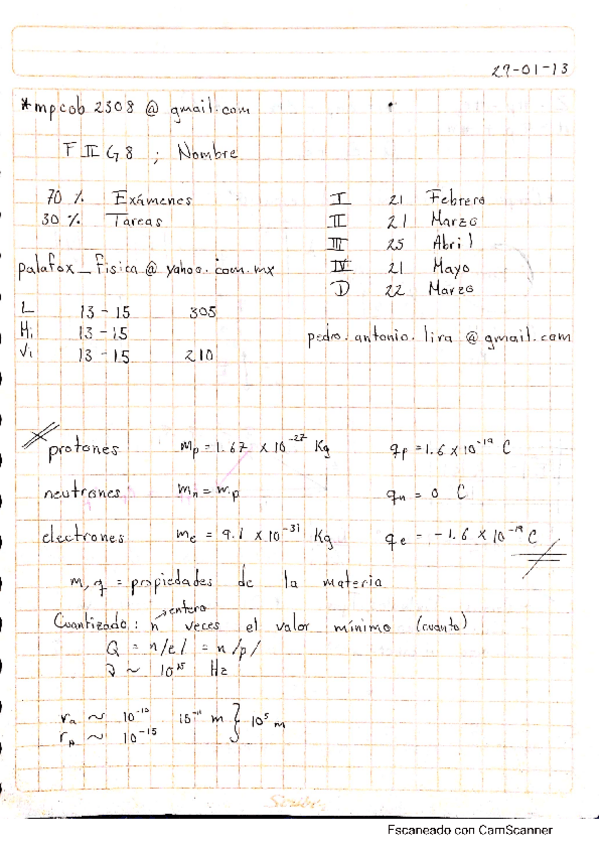 29-01-13
*mpcob2308@gmail.com
F II G8 ; Nombre
70 % Exámenes
30 % Tareas
I 21 Febrero
II 21 Marzo
III 25 Abril
IV 21 Mayo
D 22 Marzo
palafox_fisica@yahoo.com.mx
L 13-15 305
Mi 13-15
Vi 13-15 210
pedro.antonio.lira@gmail.com
protones mp = 1.67 x 10^-27 Kg qp = 1.6 x 10^-19 C
neutrones mn = mp qn = 0 C
electrones me = 9.1 x 10^-31 Kg qe = -1.6 x 10^-19 C
m, q = propiedades de la materia
entero
Cuantizado: n veces el valor mínimo (cuanto)
Q = n/e/ = n/p/
~ 10^15 Hz
ra ~ 10^-10 m } 10^5 m
rp ~ 10^-15
Scribe
Escaneado con CamScanner